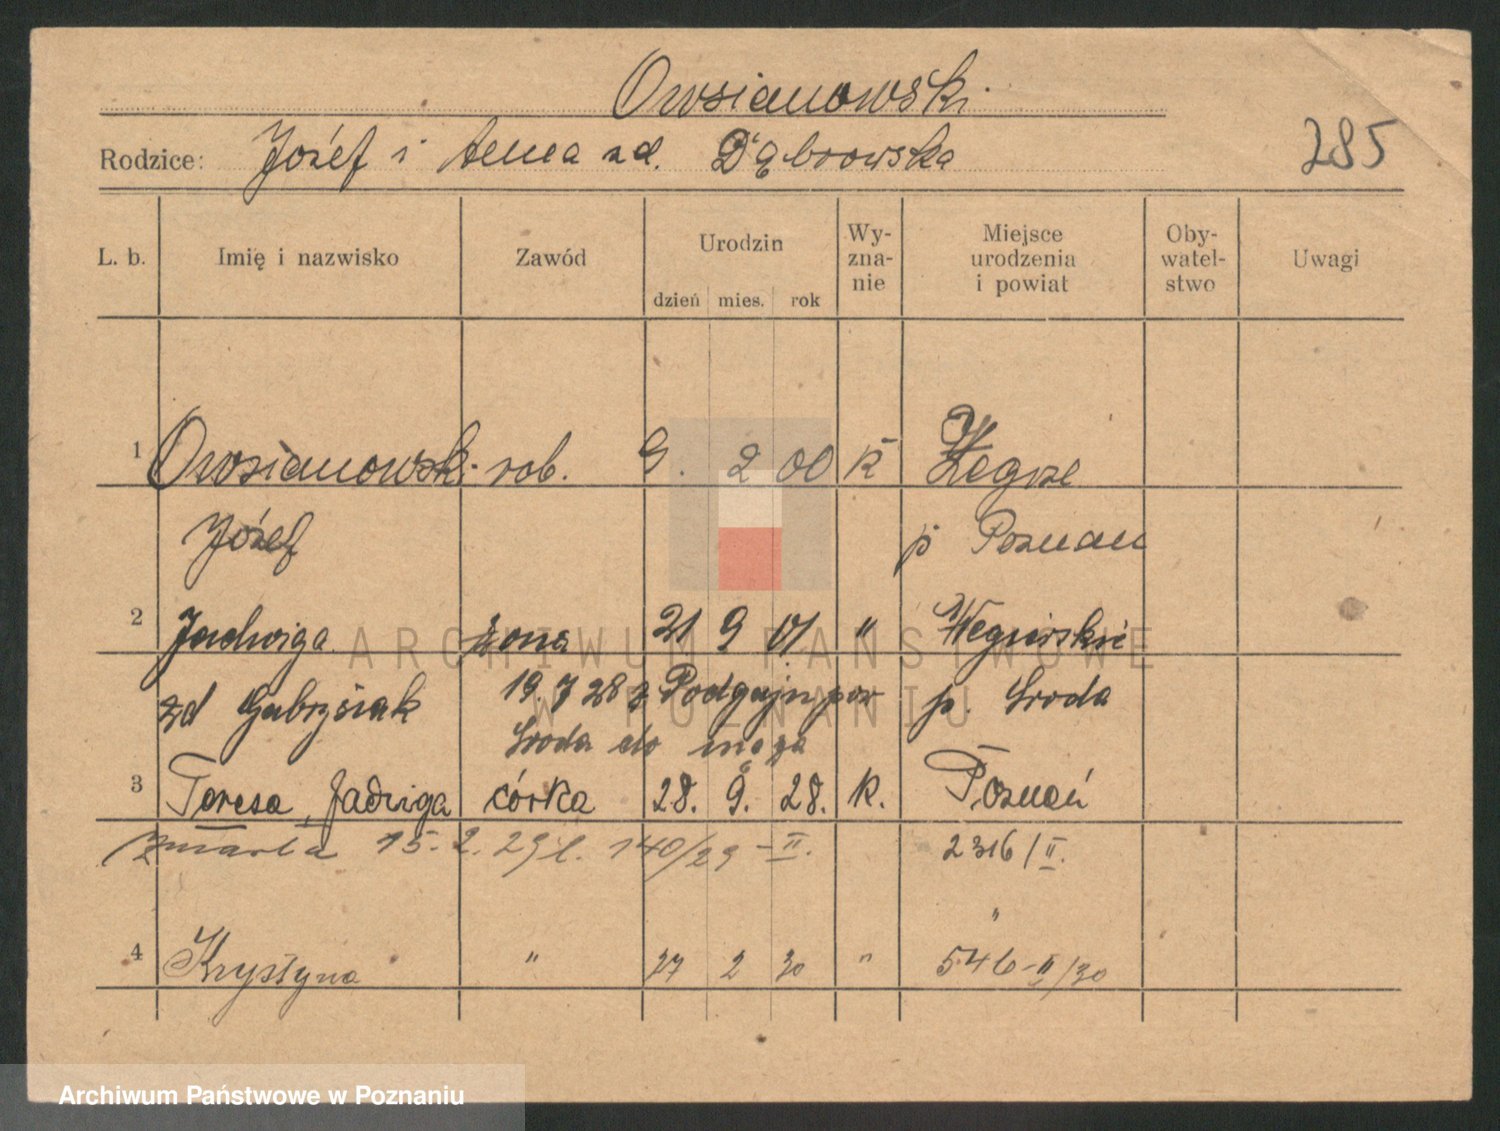 Owsianowski
Rodzice: Józef i Anna zd. Dąbrowska
285
L. b. Imię i nazwisko Zawód Urodzin dzień mies. rok Wy-zna-nie Miejsce urodzenia i powiat Oby-watel-stwo Uwagi
1 Owsianowski rob. 9. 2 00 k Żegrze
Józef p Poznań
2 Jadwiga żona 21 9 01 " Węgierskie
zd Gabryśiak 19. 7 28 z Podgaju pow p. Środa
Środa do męża
3 Teresa, Jadwiga córka 28. 9. 28. k. Poznań
zmarła 15. 2. 29 l. 140/29 - II. 2316/II.
"
4 Krystyna " 27 2 30 " 546-II/30
ARCHIWUM PAŃSTWOWE
W POZNANIU
Archiwum Państwowe w Poznaniu